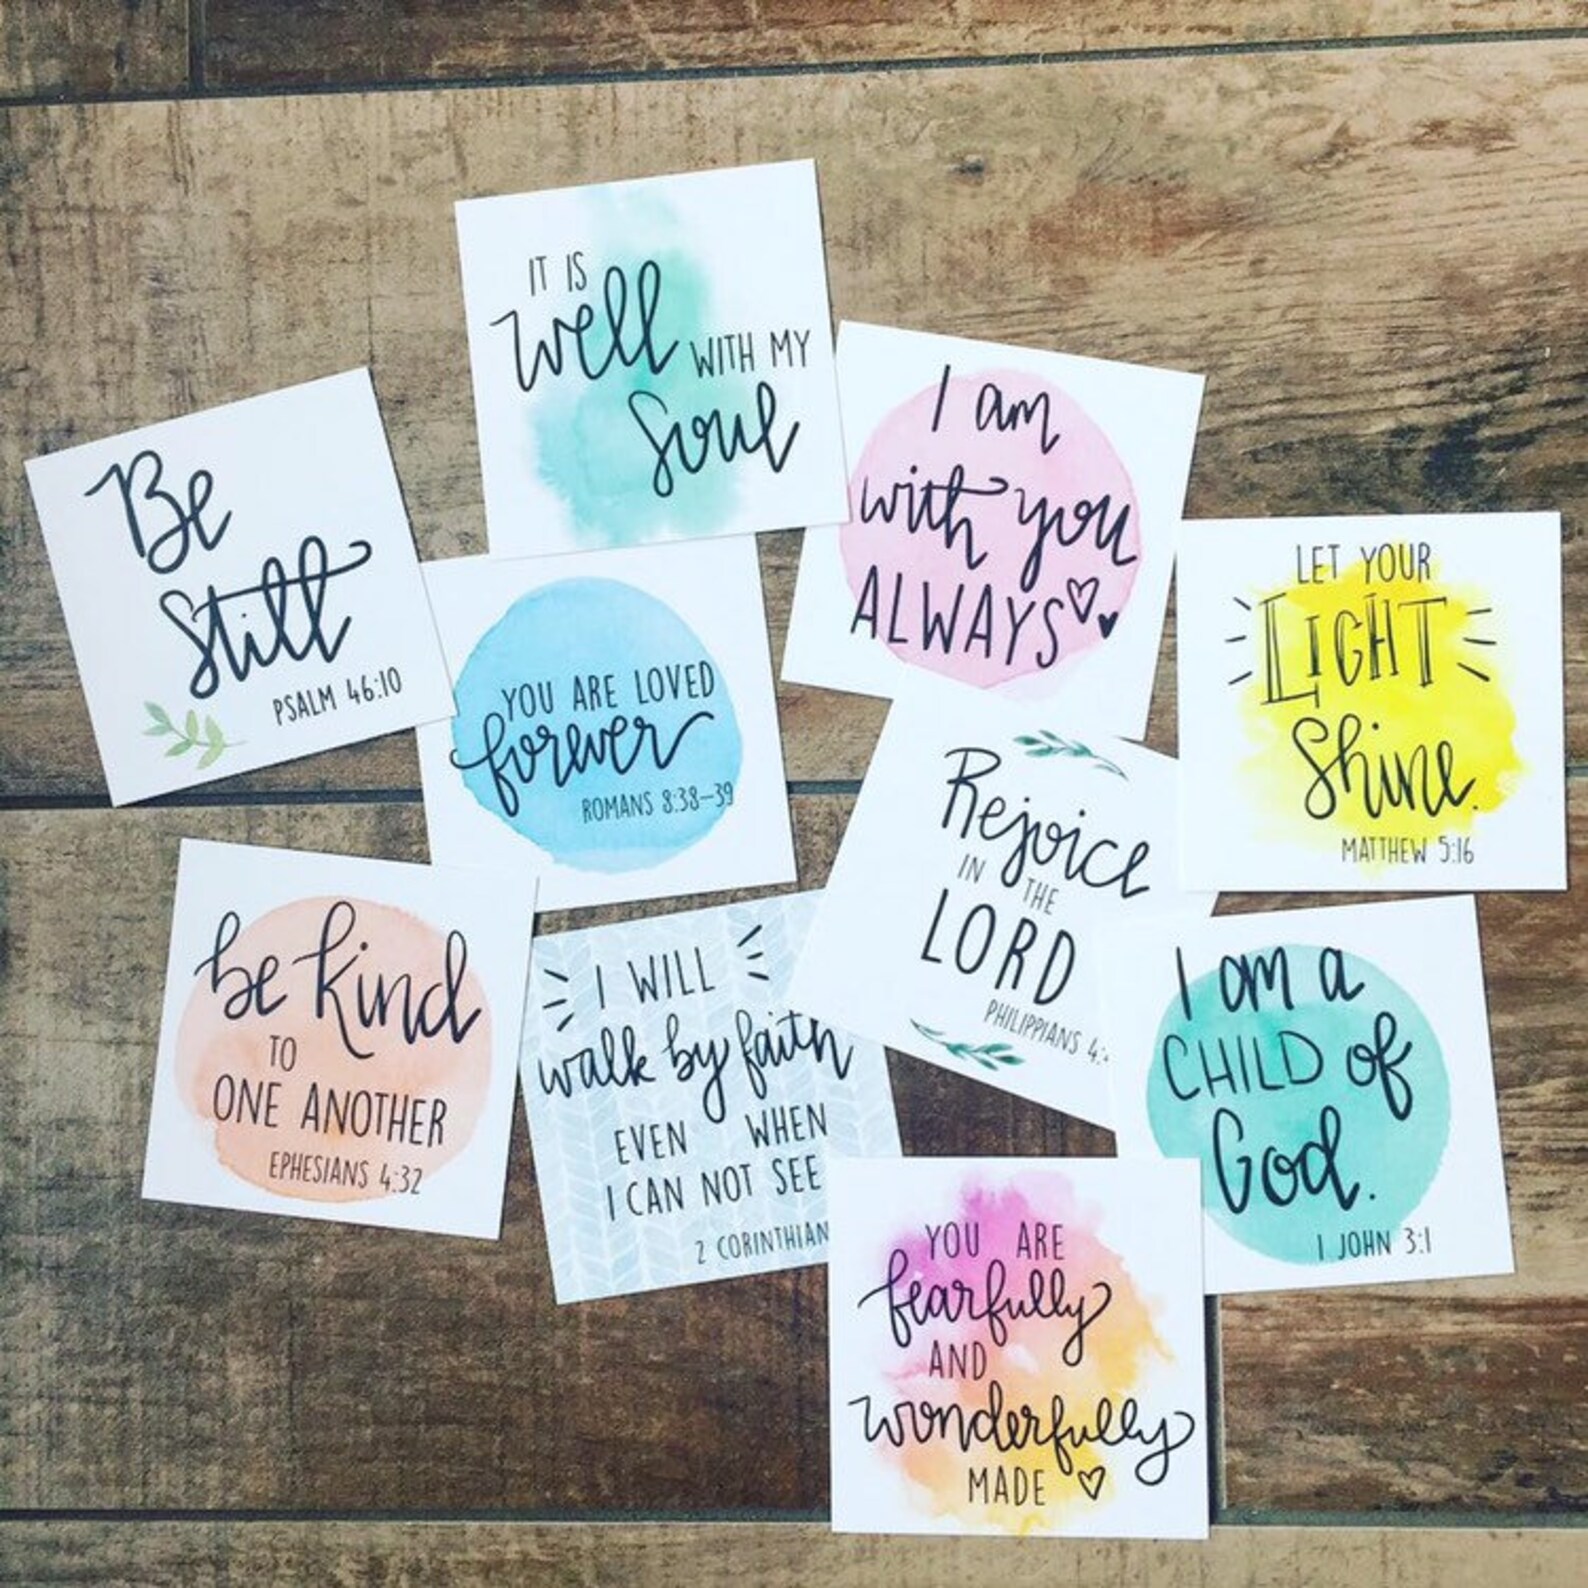 IT IS
well WITH MY
Soul
Be
Still
PSALM 46:10
I am
with you
ALWAYS
YOU ARE LOVED
forever
ROMANS 8:38–39
LET YOUR
LIGHT
Shine.
MATTHEW 5:16
Rejoice
IN THE
LORD
PHILIPPIANS 4:
be kind
TO
ONE ANOTHER
EPHESIANS 4:32
I WILL
walk by faith
EVEN WHEN
I CAN NOT SEE
2 CORINTHIAN
I am a
CHILD of
God.
1 JOHN 3:1
YOU ARE
fearfully
AND
wonderfully
MADE